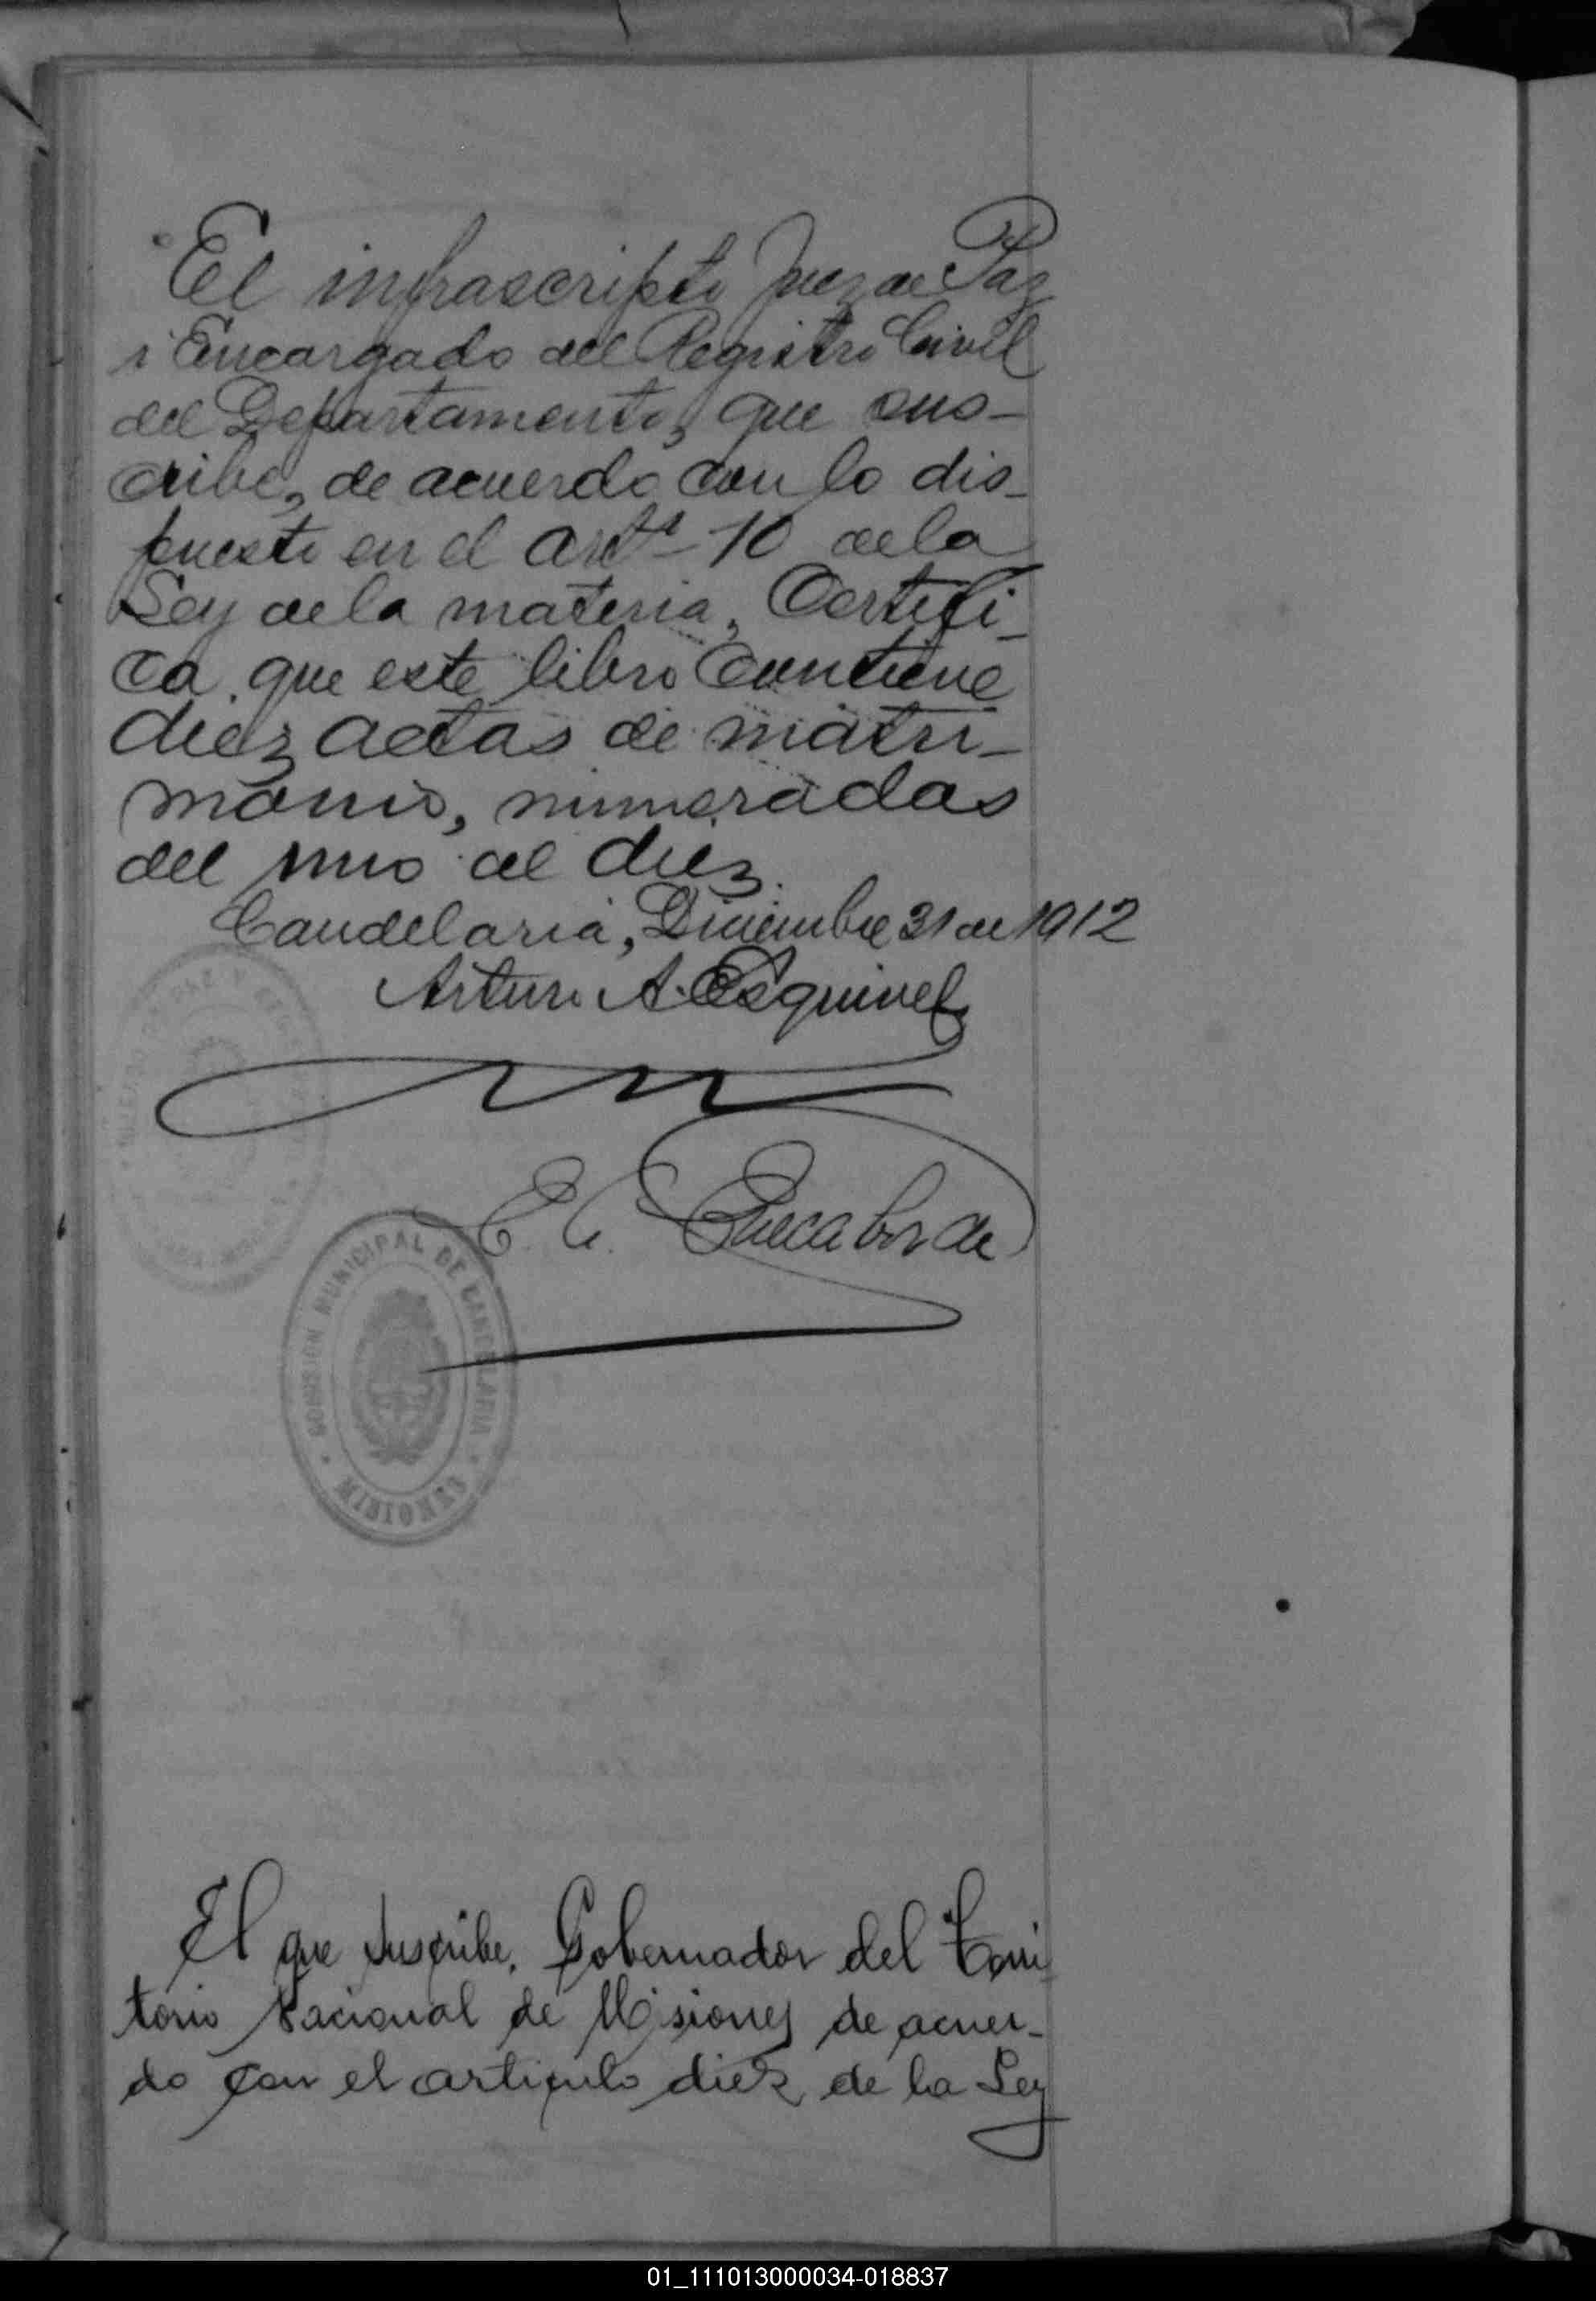 El infrascripto Juez de Paz
i Encargado del Registro Civil
del Departamento, que sus-
cribe, de acuerdo con lo dis-
puesto en el Artº 10 de la
Ley de la materia, Certifi-
ca que este libro contiene
diez actas de matri-
monio, numeradas
del uno al diez.
Candelaria, Diciembre 31 de 1912
Arturo A. Esquivel
COMISION MUNICIPAL DE CANDELARIA
MISIONES
El que suscribe, Gobernador del Terri-
torio Nacional de Misiones de acuer-
do con el articulo diez de la Ley
01_111013000034-018837